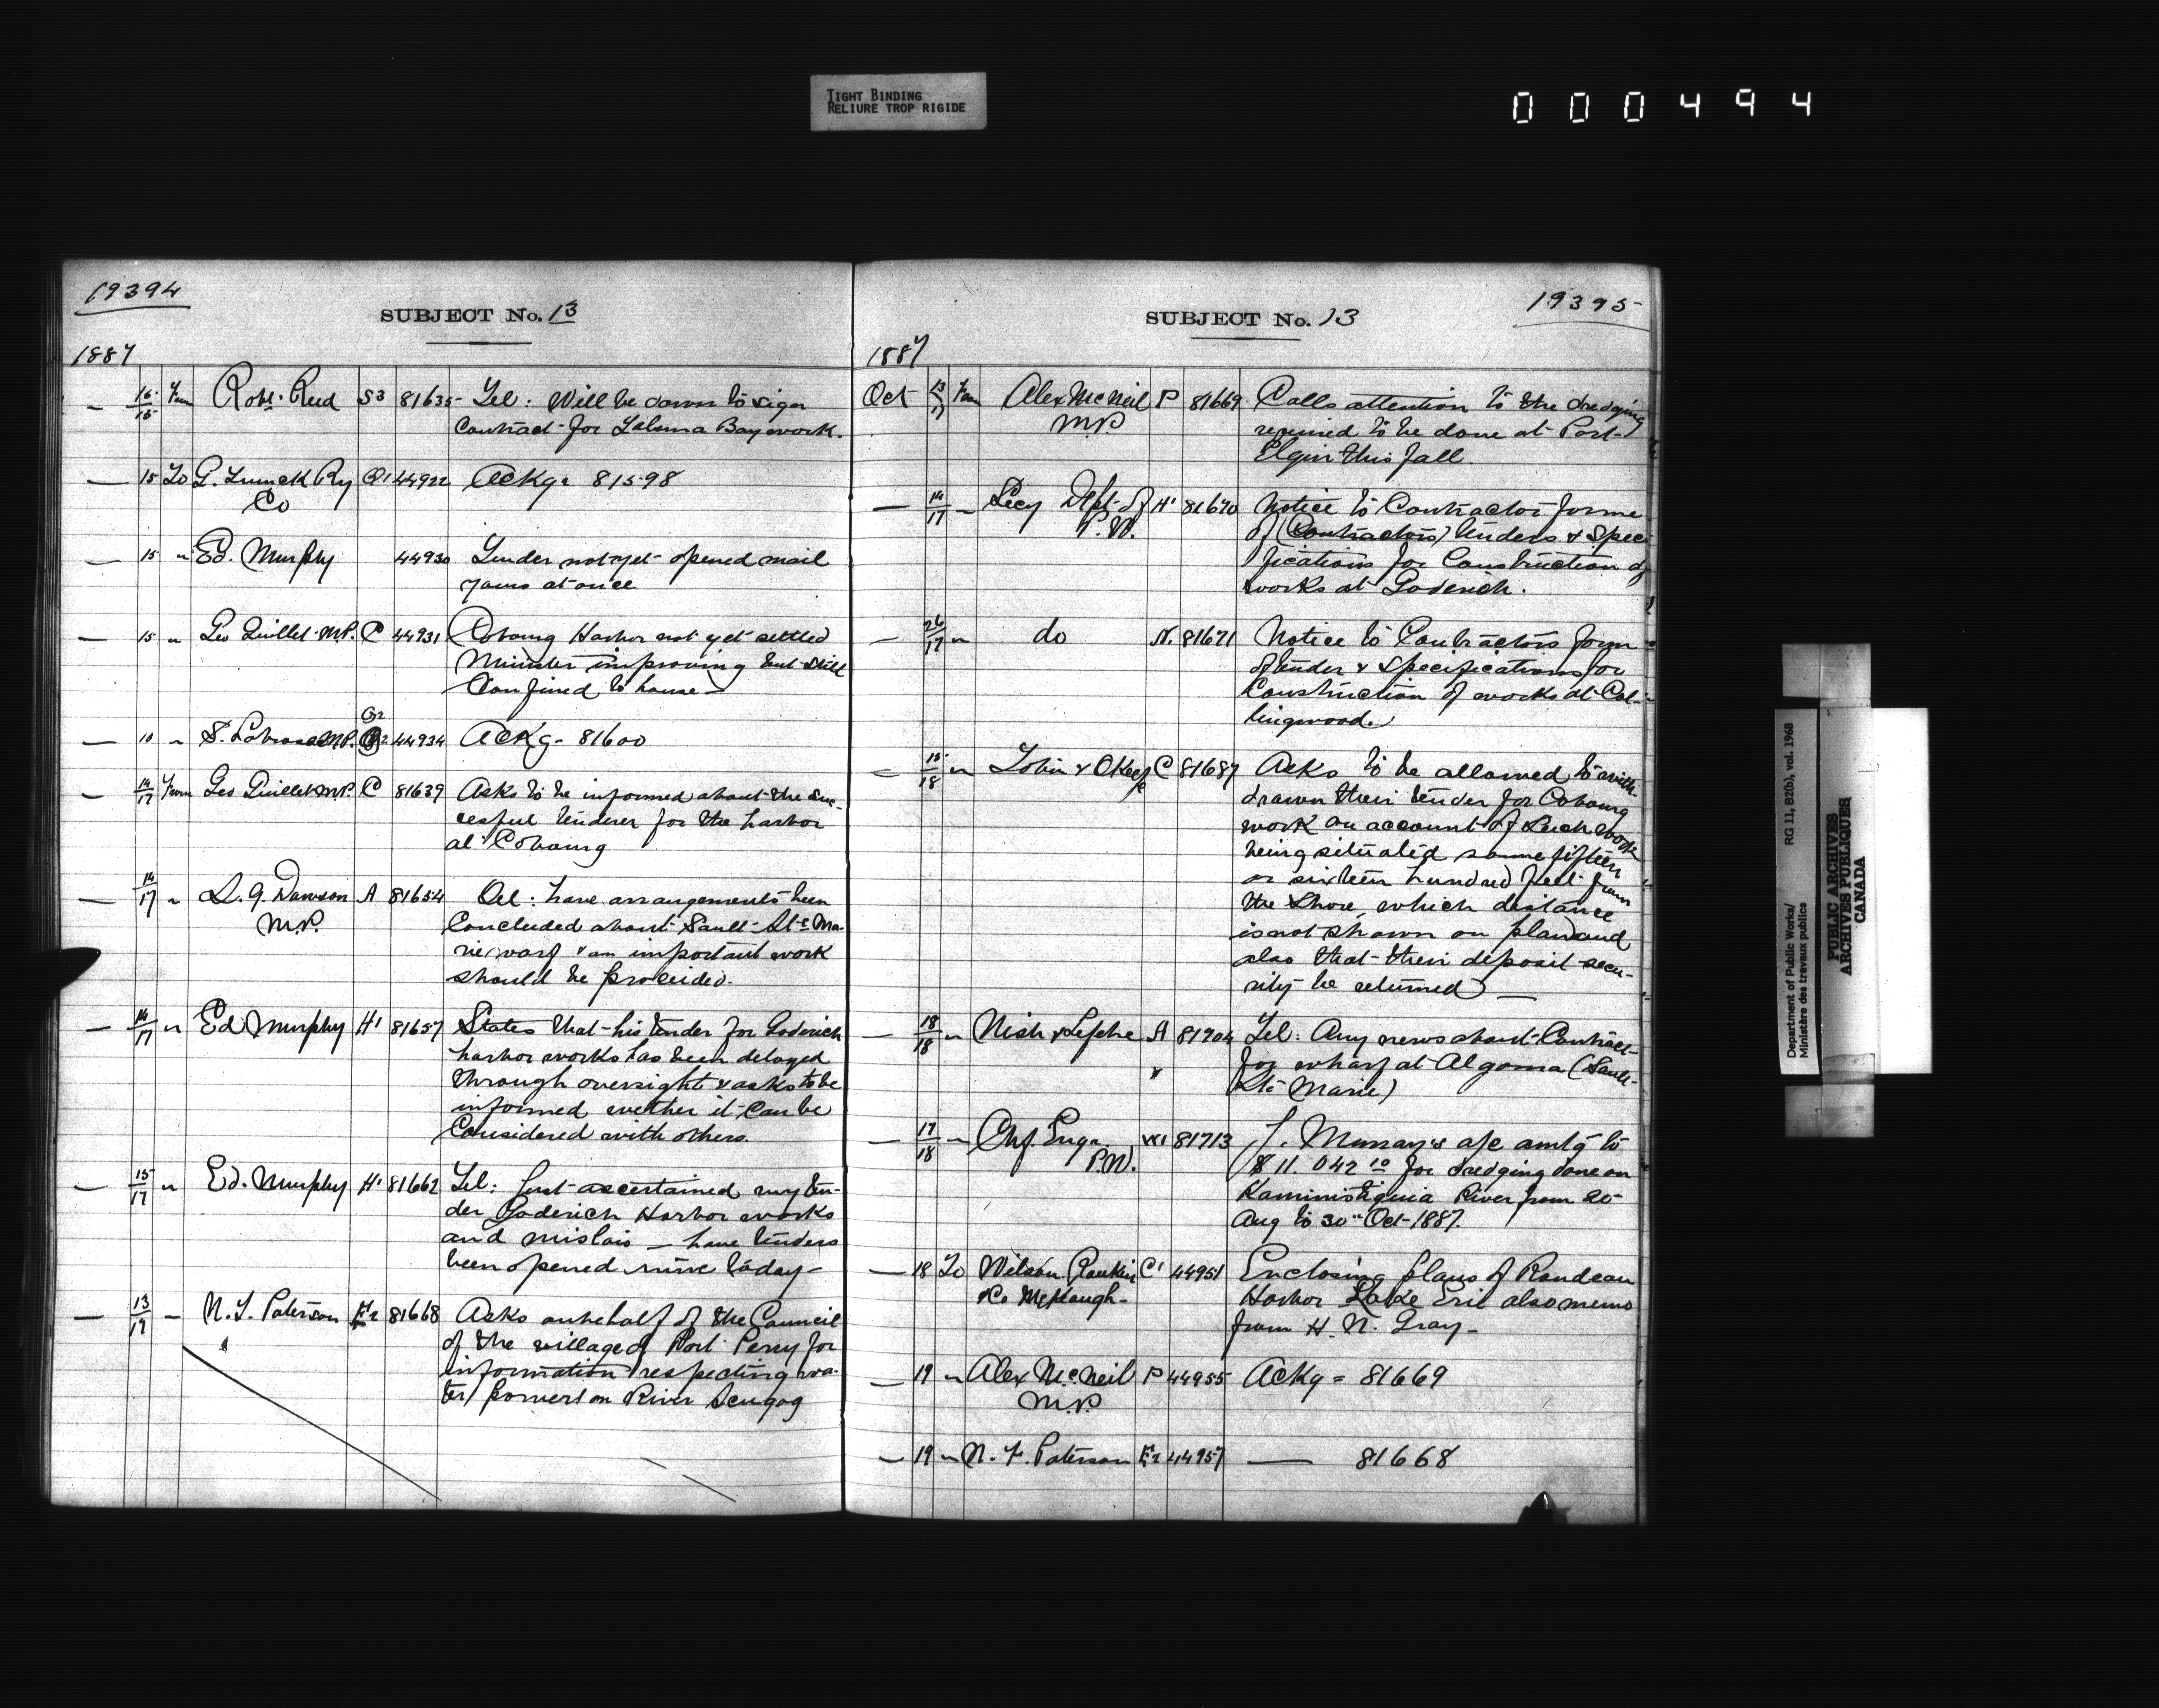 TIGHT BINDING
RELIURE TROP RIGIDE
000494
19394
SUBJECT No. 13
1887
— 15/15 From Robt. Reid S3 81635 Tel: Will be down to sign
contract for Bay work.
— 15 To G. Trunck Ry Co 44922 Ackg: 81598
— 15 " Ed. Murphy 44930 Tender not yet opened mail
yours at once
— 15 " Geo Guillet M.P. C 44931 Cobourg Harbor not yet settled
Minister improving but still
confined to house —
— 10 " S. Labrosse M.P. 44934 Ackg- 81600
— 14/17 From Geo Guillet M.P. C 81639 Asks to be informed about the suc-
cessful tenderer for the harbor
at Cobourg
— 14/17 " S. J. Dawson A 81654 Tel: have arrangements been
M.P. concluded about Sault-Ste Ma-
rie warf & an important work
should be proceided.
— 14/17 " Ed Murphy H1 81657 States that his tender for Goderich
harbor works has been delayed
through oversight & asks to be
informed wether it can be
considered with others.
— 15/17 " Ed. Murphy H1 81662 Tel: Just ascertained my ten-
der Goderich Harbor works
and mislaid — have tenders
been opened mine today —
— 13/17 — N. F. Paterson 81668 Asks on behalf of the Council
of the village of Port Perry for
information respecting wa-
ter power on River Scugog
SUBJECT No. 13
19395
1887
Oct 13/17 From Alex McNeil P 81669 Calls attention to the dredging
M.P. required to be done at Port-
Elgin this fall.
— 14/17 " Secy Dept. of H1 81670 Notice to Contractor forme
P.W. of (Contractors) tenders & Speci
fications for Construction of
works at Goderich.
— 26/17 " do N. 81671 Notice to Contractors form
of tender & specifications for
Construction of works at Col-
lingwood.
— 15/18 " Tobin & OKeefe C 81687 Asks to be allowed to with-
drawn their tender for Cobourg
work on account of such work
being situated some fifteen
or sixteen hundred feet from
the shore, which distance
is not shown on plan and
also that their deposit secu-
rity be returned —
— 18/18 " A 81704 Tel: Any news about Contract
for wharf at Algoma (Sault-
Ste Marie)
— 17/18 " Chf. Engr. 81713 J. Murray's a/c amtg to
P.W. $11.042 10 for dredging done on
Kaministiquia River from 20
Aug to 30" Oct-1887.
— 18 To Wilson Rankin C1 44951 Enclosing plans of Rondeau
&Co McKeough- Harbor Lake Erie also memo
from H. N. Gray-
— 19 " Alex McNeil P 44955 Ackg = 81669
M.P.
— 19 " N. F. Paterson 44957 — 81668
Department of Public Works/
Ministère des travaux publics
RG 11, B2(b), vol. 1968
PUBLIC ARCHIVES
ARCHIVES PUBLIQUES
CANADA